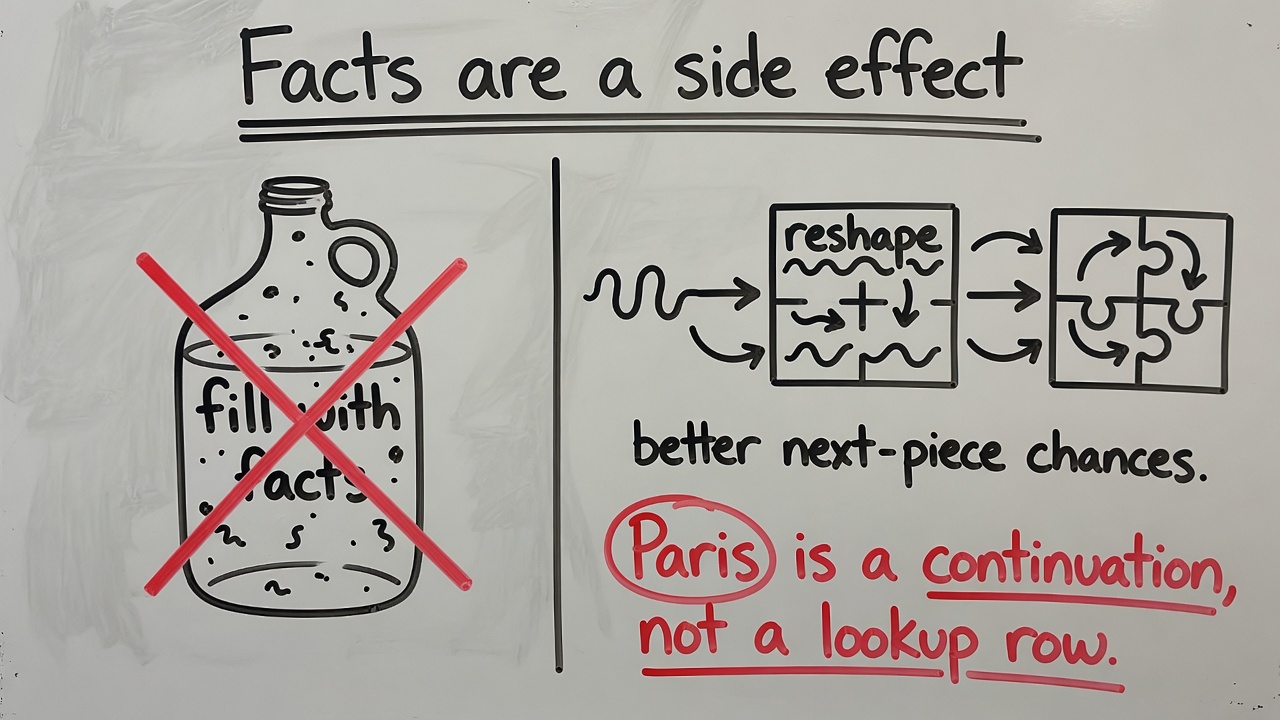 Facts are a side effect
fill with
facts
reshape
better next-piece chances.
Paris is a continuation,
not a lookup row.